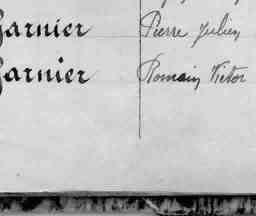 Garnier Pierre Julien
Garnier Romain Victor